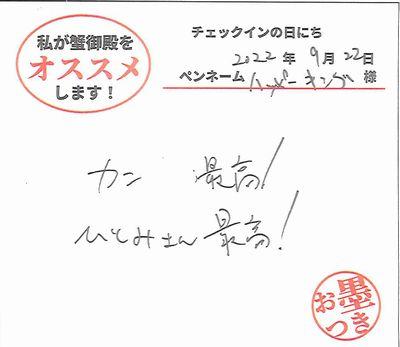 私が蟹御殿を
オススメ
します！
チェックインの日にち
2022年9月22日
ペンネーム ハッピーキング 様
カン 最高！
ひとみさん最高！
お墨つき